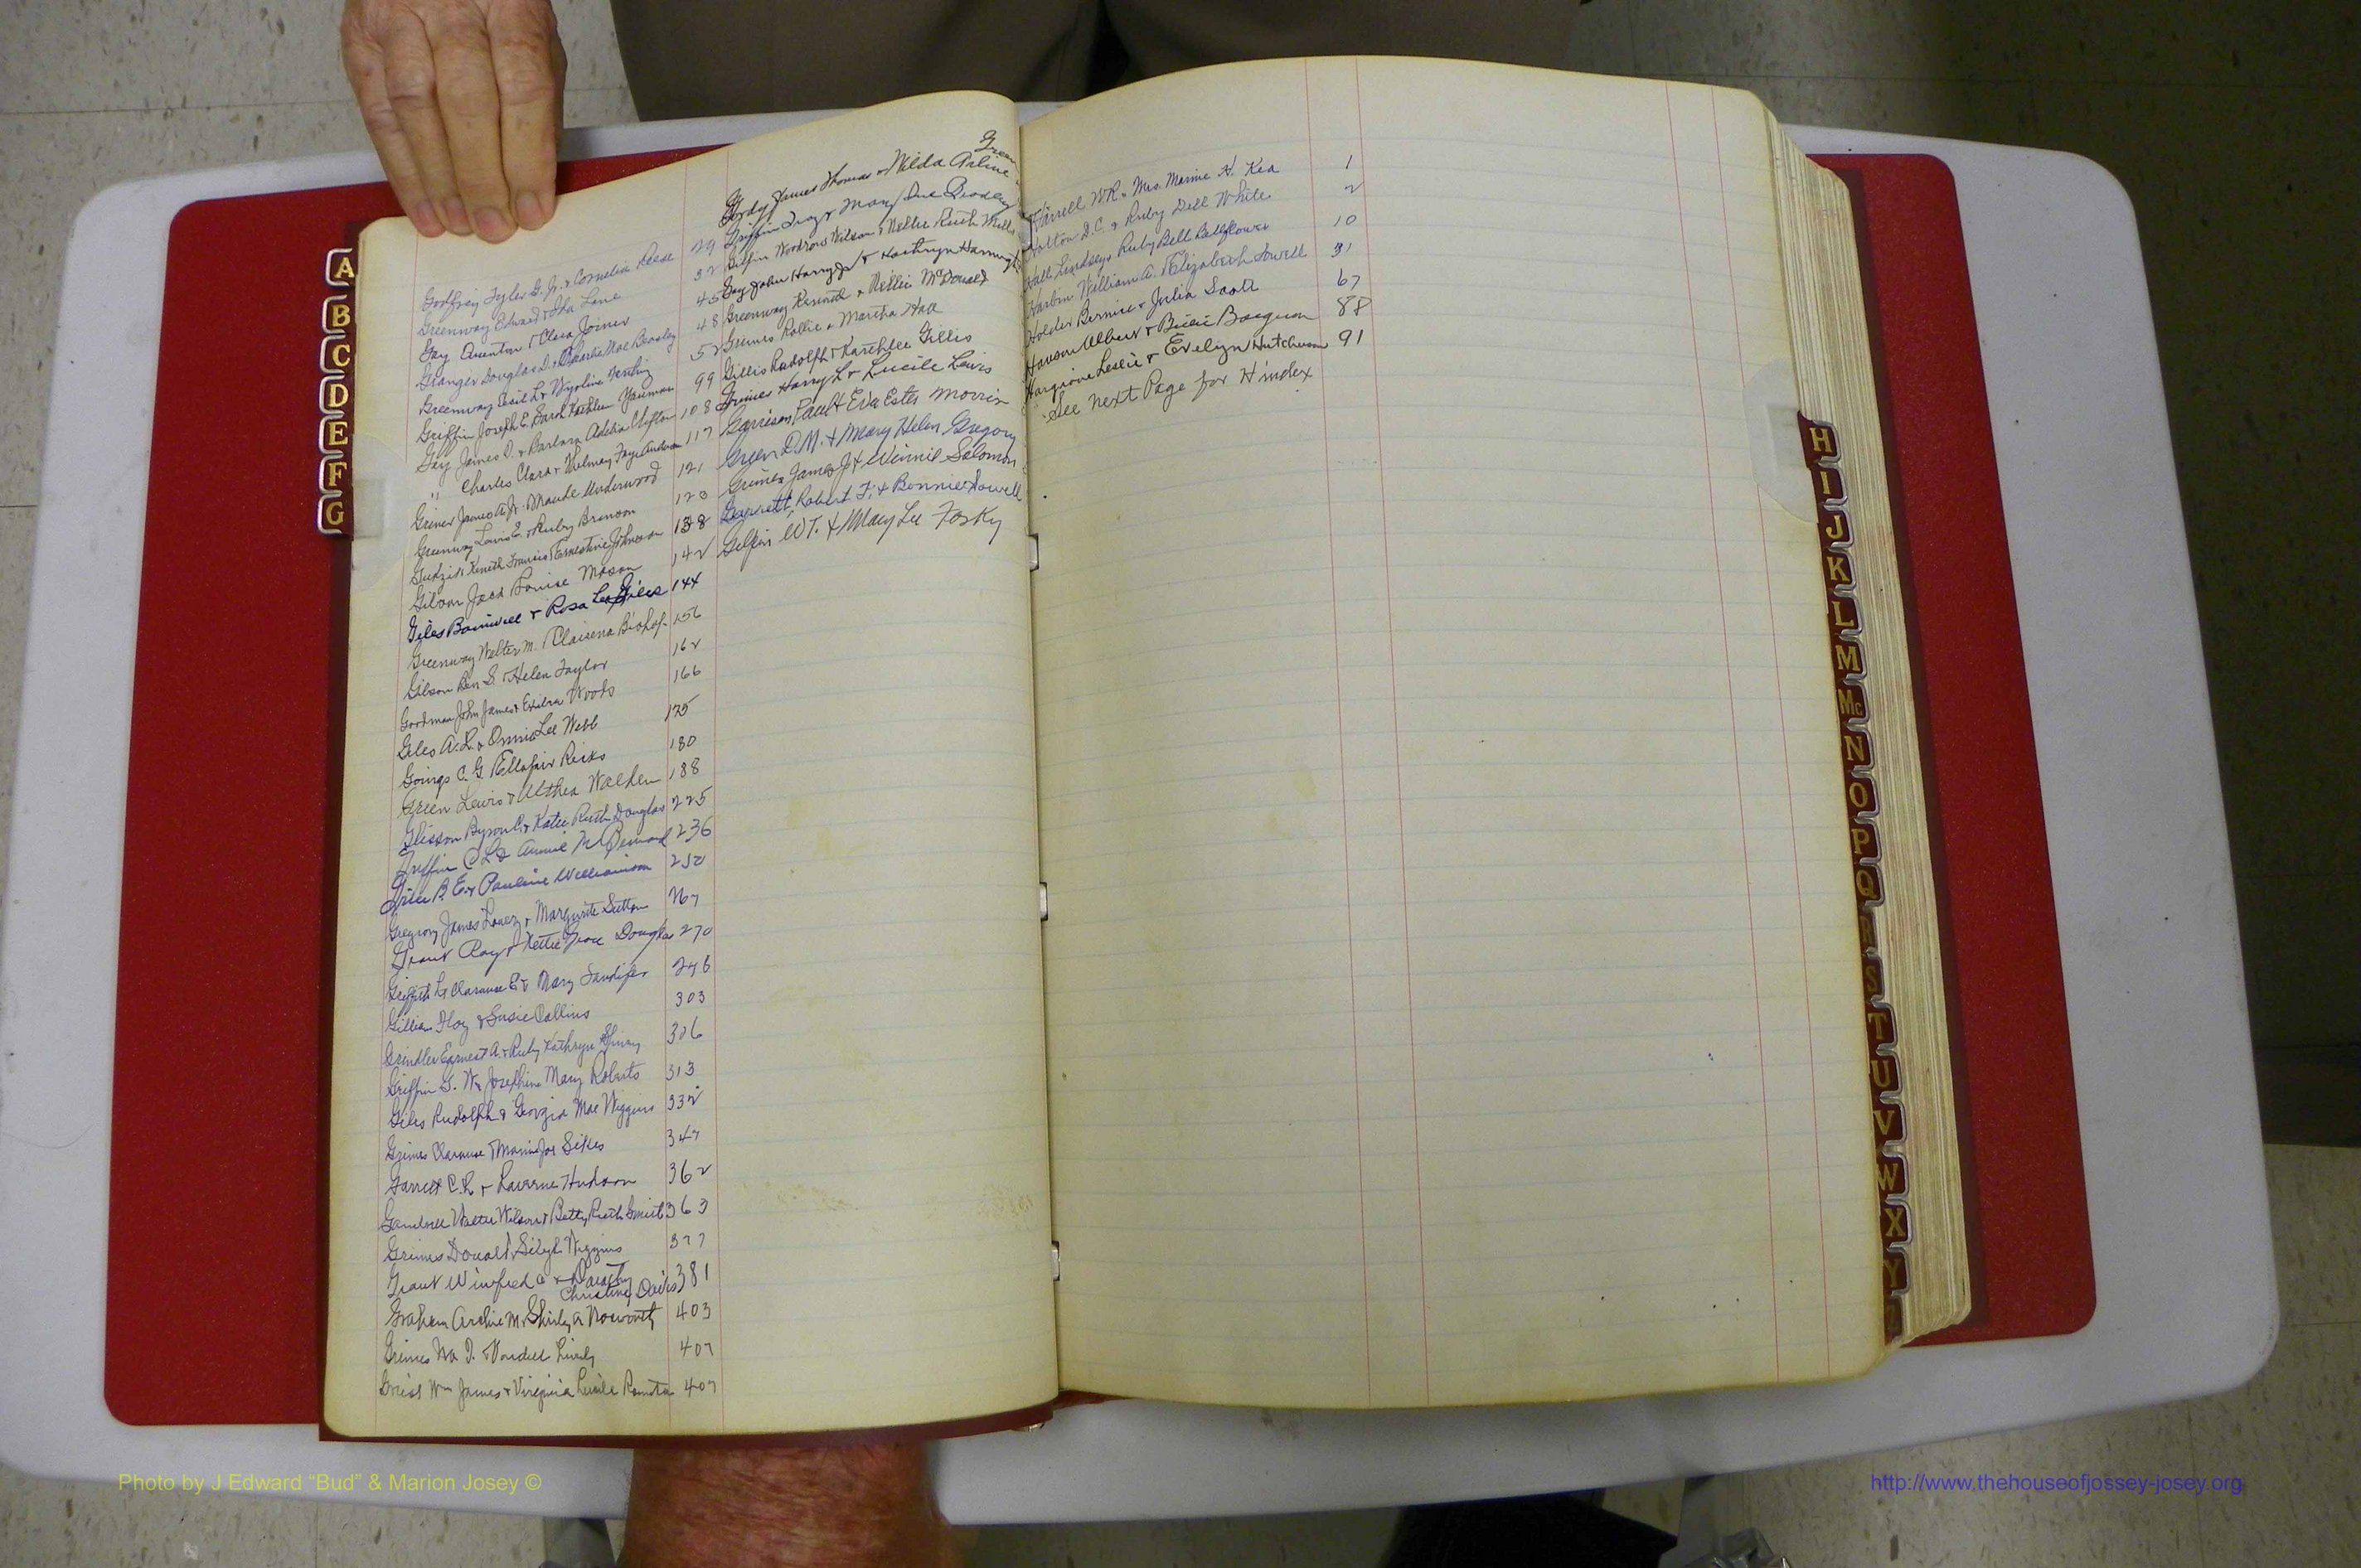 A
B
C
D
E
F
G
Godfrey Tyler G. Jr. & Cornelia Reese 29
Greenway Edward & Ila Lane 32
Gay Quinton & Clara Joiner 45
Granger Douglas D. & Charlie Mae Beasley 48
Greenway Cecil L. & Wyoline 52
Griffin Joseph E. & Sarah Kathleen Youmans 99
Gay James D. & Barbara Adelia Clifton 108
" Charles Clark & Thelmay Faye 117
Griner James A. Jr. Maude Underwood 121
Greenway Lewis E. & Ruby Brinson 123
Keneth Francis & Ernestine Johnson 138
Jack Louise Mason 142
Giles & Rosa Lee Giles 144
Greenway Walter M. & Claisena Bishop 156
Gibson Ben S. & Helen Taylor 162
Goodman John James & Woods 166
Giles A.L. & Onnie Lee Webb 175
Goings C. G. & Ellafair Ricks 180
Green Lewis & Althea Walden 188
Glisson Byron C. & Katie Ruth Douglas 225
Griffin C L & Annie M 236
B. E. & Pauline Williamson 250
Gregrory James & Margurite Sutton 267
Grant Ray & Nettie Grace Douglas 270
Griffith Clarance E. & Mary Sandifer 296
Gilliam Floy & Susie Collins 303
Grindler Earnest A. & Ruby Kathryn 306
Griffin G. W. & Josephine Mary Roberts 313
Giles Rudolph & Georgia Mae Wiggins 332
Grimes Clarance & Marin Joe Sikes 347
Garrett C.R. & Laverne Hudson 362
Walter Wilson & Betty Ruth Smith 363
Grimes Donald & Sibyl Wiggins 377
Grant Winfred C & Dorothy
Christine Davis 381
Graham Archie M. & Shirley A Nosworthy 403
Grimes Wm D. & Vondell Lively 407
Wm James & Virginia Lucile 407
Green
Gordy James Thomas & Wilda Arline
Griffin Troy & Mary Sue Beasley
Griffin Woodrow Wilson & Nellie Ruth Wells
Gay John Harry Jr & Kathryn
Greenway Kenneth & Nellie McDonald
Grimes Rollie & Martha Hall
Gillis Rudolph & Kathlee Gillis
Grimes Harry L & Lucile Lewis
Garrison Paul & Eva Estes Morris
Green D.M. & Mary Helen Gregory
Grimes James J & Winnie Solomon
Garrett, Robert F. & Bonnie Sowell
W.T. & Mary Lee Fosky
Harrell W R. & Mrs. Mamie H. Kea 1
Holton D.C. & Ruby Dell White 2
Hall Lindsey & Ruby Bell Bellflower 10
Harbin William A. & Elizabeth Sowell 31
Holder Bernice & Julia Scott 67
Albert & Billie 88
Hargrove Leslie & Evelyn Hutcheson 91
See next Page for H index
H
I
J
K
L
M
Mc
N
O
P
Q
R
S
T
U
V
W
X
Y
Photo by J Edward “Bud” & Marion Josey ©
http://www.thehouseofjossey-josey.org